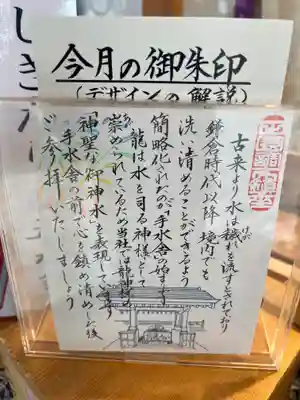 今月の御朱印
(デザインの解説)
古来より水は穢れを流すとされており
けが
鎌倉時代以降、境内でも
洗い清めることができるよう
簡略化されたのが「手水舎の始まり」
龍は水を司る神様として
崇められているため当社では龍神の
「神聖な御神水」を表現しています
手水舎の前で心を鎮め清めし後
ご参拝いたしましょう